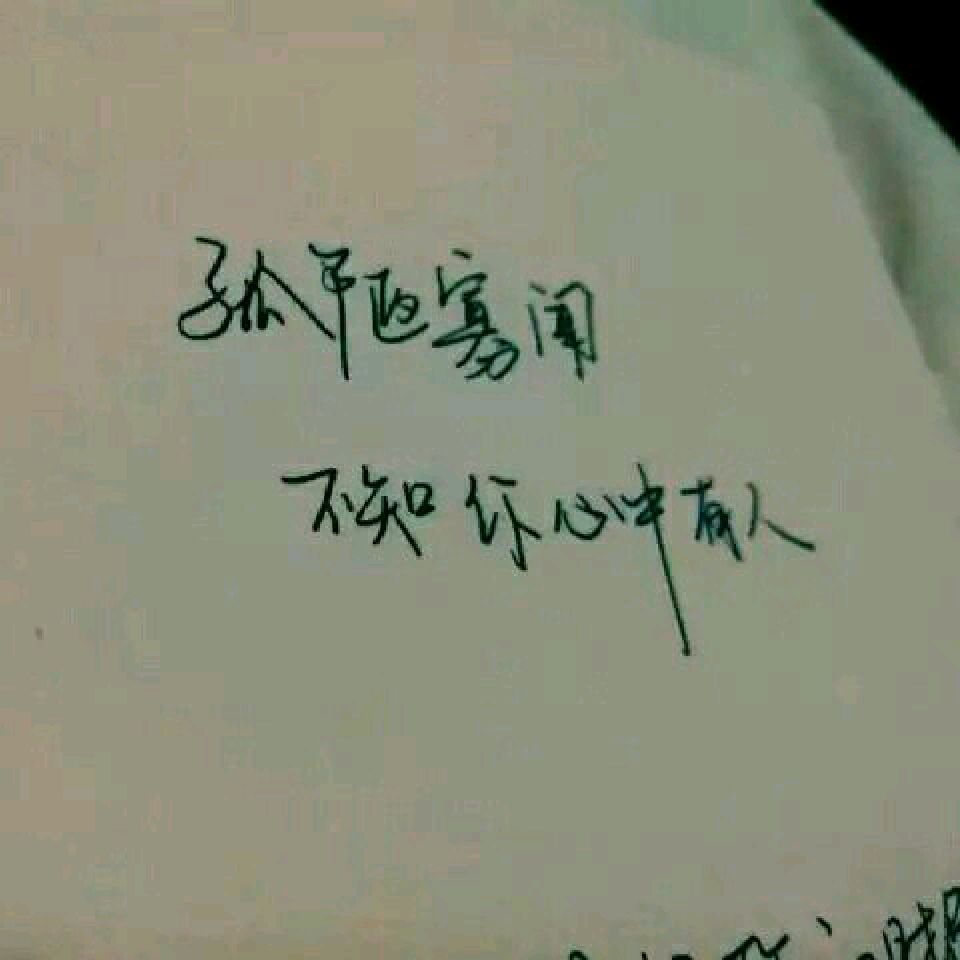 孤单到寡闻
不知你心中有人